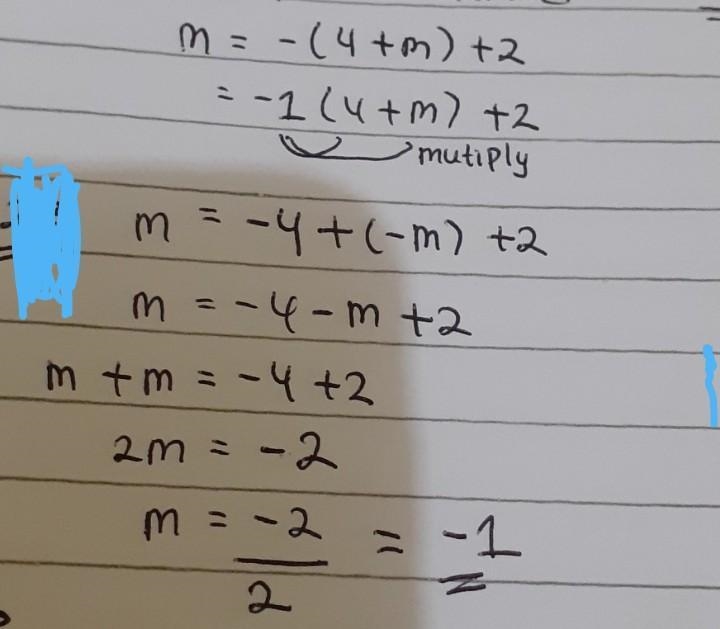 m = -(4+m) +2
= -1(4+m) +2
mutiply
m = -4+(-m) +2
m = -4-m+2
m +m = -4 +2
2m = -2
m = -2/2 = -1